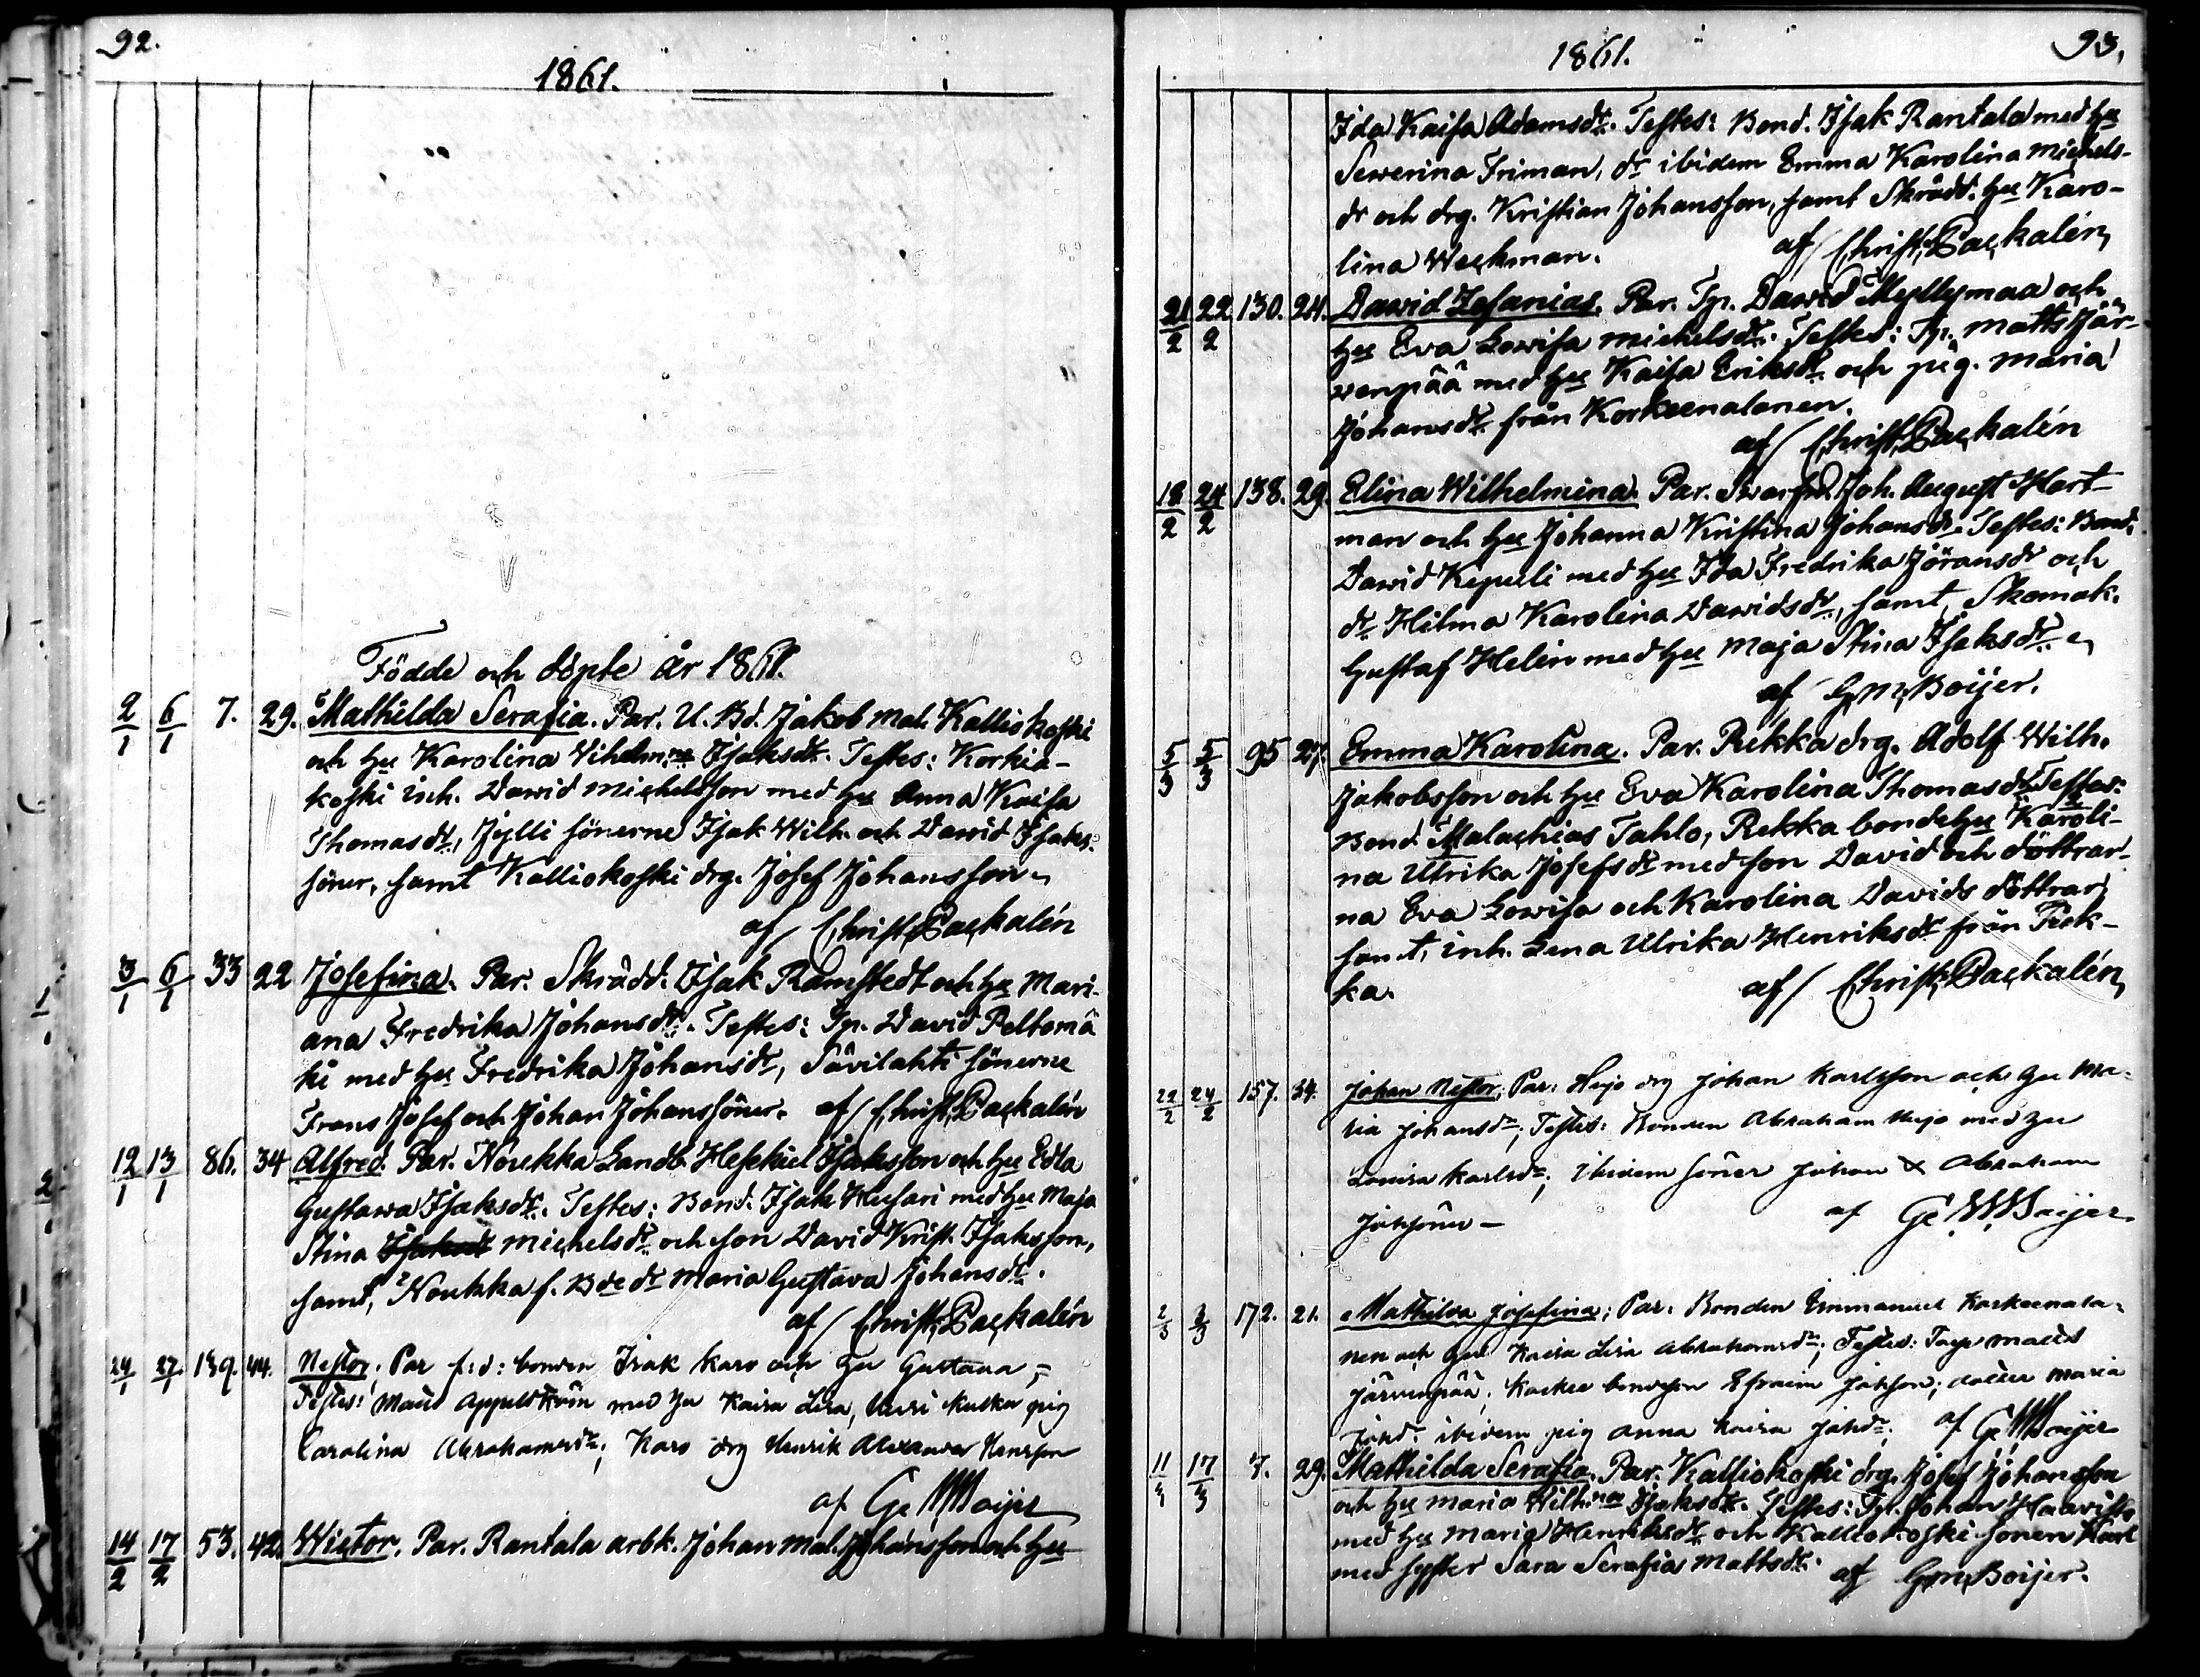 92.
1861.
Födde och döpte år 1861.
2/1 6/1 7. 29. Mathilda Serafia. Par. U. Bd. Jakob Mal. Kalliokoski
och hu Karolina Vihelm:na Isaksdr. Testes: Korkia-
koski inh. Dawid Michelsson med hu Anna Kaisa
Thomasdr, Jylli sönerne Isak Wilh. och Dawid Isaks-
söner, samt Kalliokoski drg. Josef Johansson.
af Christ. Packalén
3/1 6/1 33 22 Josefina. Par. Skrädd. Isak Ramstedt och hu Mari-
ana Fredrika Johansdr. Testes: Tp. David Peltomä
ki med hu Fredrika Johansdr, Savilahti sönerne
Frans Josef och Johan Johanssöner. af Christ. Packalén
12/1 13/1 86. 34 Alfred. Par. Koukka Landb. Hesekiel Isaksson och hu Edla
Gustawa Isaksdr. Testes: Bond. Isak Husari med hu Maja
Stina Isaksdr Michelsdr och son David Krist. Isaksson,
samt, Koukka f. Bde dr Maria Gustava Johansdr.
af Christ. Packalén
24/1 27/1 139. 44. Nestor; Par f: d: bonden Isak Karo och hu Gustava;
Testes: Matts Appelström med hu Kaisa Lisa, pig
Carolina Abrahamsdr; Karo drg Henrik Alexander Henrsson
af G M Boijer
14/2 17/2 53. 42. Wictor. Par. Rantala arbk. Johan Mal. Johansson och hu
1861. 93.
Ida Kaisa Adamsdr. Testes: Bond. Isak Rantala med hu
Sewerina Friman, dr ibidem Emma Karolina Michels-
dr och drg. Kristian Johansson, samt Skrädd. hu Karo-
lina Weckman. af Christ. Packalén
21/2 22/2 130. 24. Dawid Zefanias. Par. Tp. Dawid Myllymaa och
hu Eva Lowisa Michelsdr. Testes: Tp. Matts Jär-
wenpää med hu Kaisa Eriksdr och pig. Maria
Johansdr från Korkeenalanen.
af Christ. Packalén
18/2 24/2 138. 29. Elina Wilhelmina. Par. Joh. August Hart-
man och hu Johanna Kristina Johansdr. Testes: Bond.
Dawid Kepuli med hu Ida Fredrika Jöransdr och
dr Hilma Karolina Dawidsdr, samt, Skomak.
Gustaf Helin med hu Maja Stina Isaksdr.
af G M Boijer.
5/3 5/3 95 27. Emma Karolina. Par. Rekka drg. Adolf Wilh.
Jakobsson och hu Eva Karolina Thomasdr Testes:
Bond. Malachias Tahlo, Rekka bonde hu Karoli-
na Ulrika Josefsdr med son David och döttrar-
na Eva Lowisa och Karolina Davids döttrar
samt, inh. Lena Ulrika Henriksdr från Tuk-
ka. af Christ. Packalén
22/2 24/2 157. 34. Johan Nestor; Par: Heijo drg Johan Karlsson och hu Ma-
ria Johansdr; Testes: Bonden Abraham Heijo med hu
Lovisa Karlsdr; ibidem söner Johan & Abraham
Johsöner - af G M Boijer
2/3 3/3 172. 21. Mathilda Josefina; Par: Bonden Emmanuel Korkeenala-
nen och hu Kaisa Lisa Abrahamsdr; Testes: Torp Matts
Järvenpää; bondeson Efraim Johsson; dotter Maria
Johdr ibidem pig Anna Kaisa Johdr; af G M Boijer
11/3 17/3 7. 29. Mathilda Serafia. Par. Kalliokoski drg. Josef Johansson
och hu Maria Wilh:na Isaksdr. Testes: Tp. Johan Haavisto
med hu Maria Henriksdr och Kalliokoski sonen Karl
med syster Sara Serafia Mattsdr. af G M Boijer.